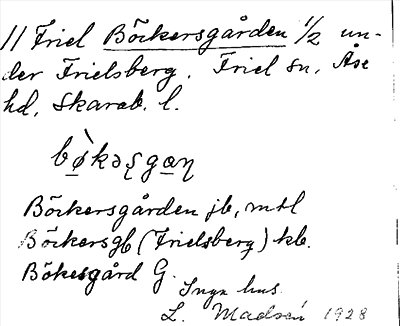 11 Friel Böckersgården 1/2 un-
der Frielsberg. Friel sn, Åse
hd, Skarab. l.
bø̀kəʂgaɳ
Böckersgården jb, mtl
Böckersgb (Frielsberg) kb.
Bökesgård G.
Inga hus
L. Madsén 1928